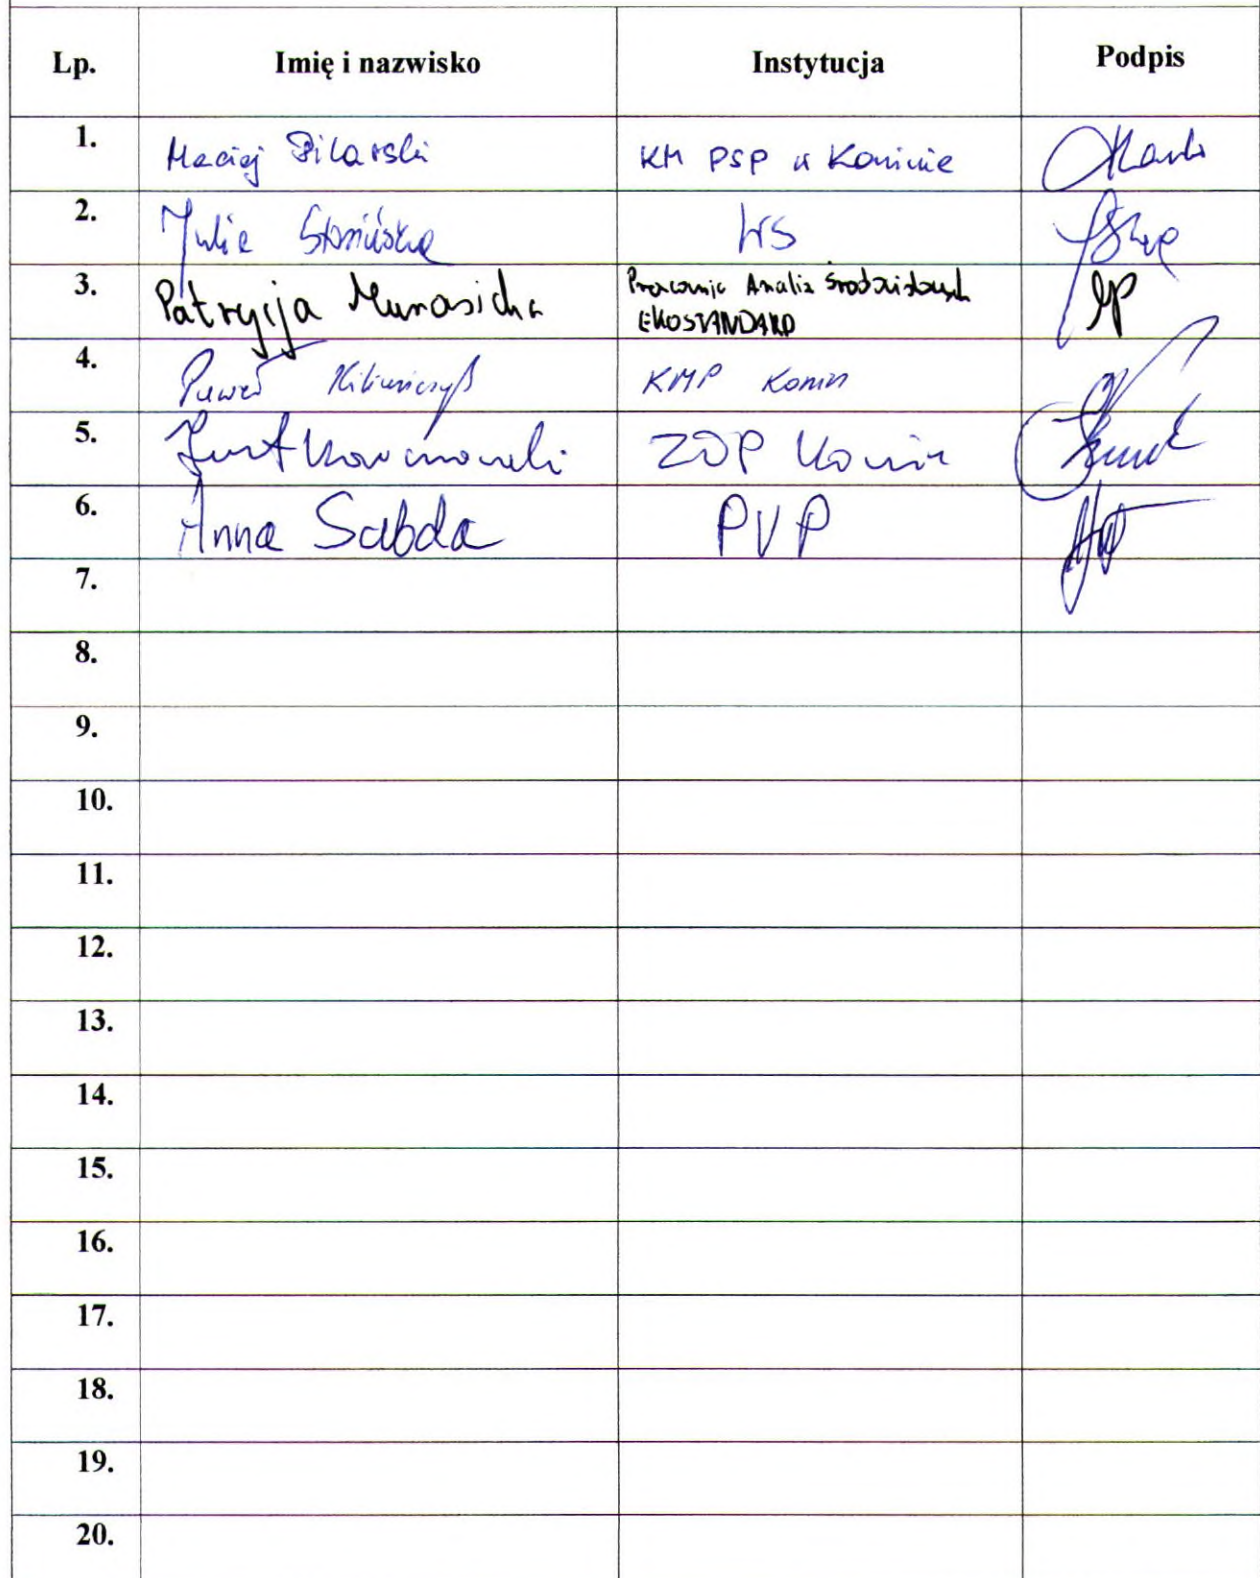 Lp. Imię i nazwisko Instytucja Podpis
1. Maciej Pilarski KM PSP w Koninie
2. Julia
3. Patrycja Pracownia Analiz Środowiskowych
EKOSTANDARD
4. Paweł KMP Konin
5. ZDP Konin
6. Anna Sabda PVP
7.
8.
9.
10.
11.
12.
13.
14.
15.
16.
17.
18.
19.
20.